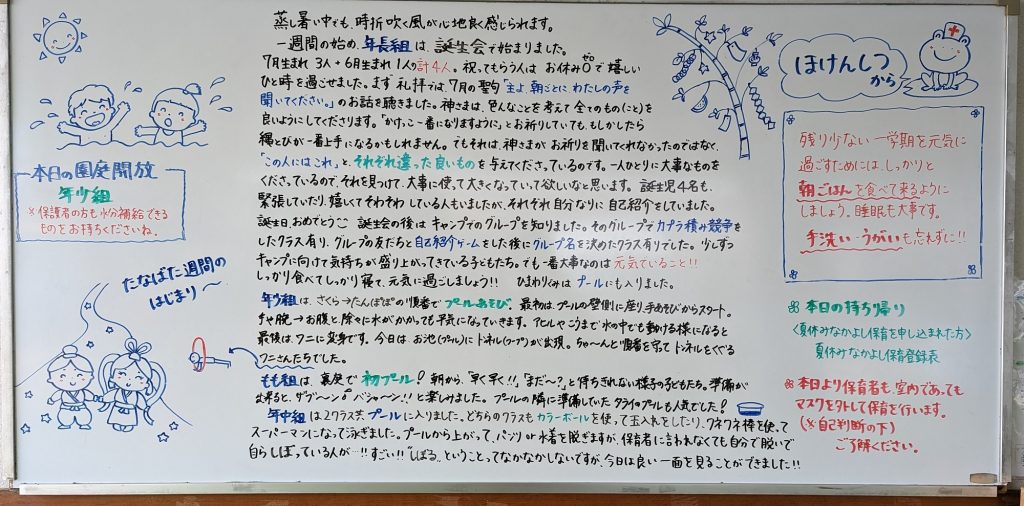 本日の園庭開放
年少組
※保護者の方も水分補給できる
ものをお持ちくださいね。
たなばた週間の
はじまり〜
蒸し暑い中でも、時折吹く風が心地良く感じられます。
一週間の始め、年長組は、誕生会で始まりました。
7月生まれ 3人+6月生まれ 1人の計4人。祝ってもらう人は お休み0で 嬉しい
ゼロ
ひと時を過ごせました。まず 礼拝では、7月の聖句「主よ、朝ごとに、わたしの声を
聞いてください。」のお話を聴きました。神さまは、色んなことを考えて 全てのもの(こと)を
良いようにしてくださります。「かけっこ一番になりますように」とお祈りしていても、もしかしたら
縄とびが一番上手になるのかもしれません。でもそれは、神さまが お祈りを聞いてくれなかったのではなく、
「この人にはこれ」と、それぞれ違った良いものを与えてくださっているのです。一人ひとりに大事なものを
くださっているので、それを見つけて、大事に使って大きくなっていって欲しいなと思います。誕生児4名も、
緊張していたり、嬉しくてそわそわしている人もいましたが、それぞれ自分なりに自己紹介をしていました。
誕生日、おめでとう 誕生会の後は キャンプでのグループを知りました。そのグループでカプラ積み競争を
したクラス有り、グループの友だちと自己紹介ゲームをした後にグループ名を決めたクラス有りでした。少しずつ
キャンプに向けて気持ちが盛り上がってきている子どもたち。でも一番大事なのは 元気でいること!!
しっかり食べてしっかり寝て、元気に過ごしましょう!! ひまわりぐみは プールにも入りました。
年少組は、さくら→たんぽぽの順番でプールあそび。最初は、プールの壁側に座り、手あそびからスタート。
手や腕→お腹と、徐々に水がかかっても平気になっていきます。アヒルやこうまで水の中でも動ける様になると
最後は、ワニに変身です。今日は お池(プール)にトンネル(フープ)が出現。ちゃ〜んと順番を守ってトンネルをくぐる
ワニさんたちでした。
もも組は、裏庭で初プール!朝から、「早く早く!!」「まだ〜?」と待ちきれない様子の子どもたち。準備が
出来ると、ザブ〜ン バシャ〜ン!!と楽しみました。プールの隣に準備していたタライのプールも人気でした!
年中組は、2クラス共 プールに入りました。どちらのクラスもカラーボールを使って玉入れをしたり、クネクネ棒を使って
スーパーマンになって泳ぎました。プールから上がって、パンツ or 水着を脱ぎますが、保育者に言われなくても自分で脱いで
自らしぼっている人が…!!すごい!!“しぼる”ということってなかなかしないですが、今日は良い一面を見ることができました!!
ほけんしつ
から
残り少ない一学期を元気に
過ごすためには、しっかりと
朝ごはんを食べて来るように
しましょう。睡眠も大事です。
手洗い・うがいも忘れずに!!
本日の持ち帰り
〈夏休みなかよし保育を申し込まれた方〉
夏休みなかよし保育登録表
※本日より保育者も、室内であっても
マスクを外して保育を行います。
(※自己判断の下)
ご了解ください。